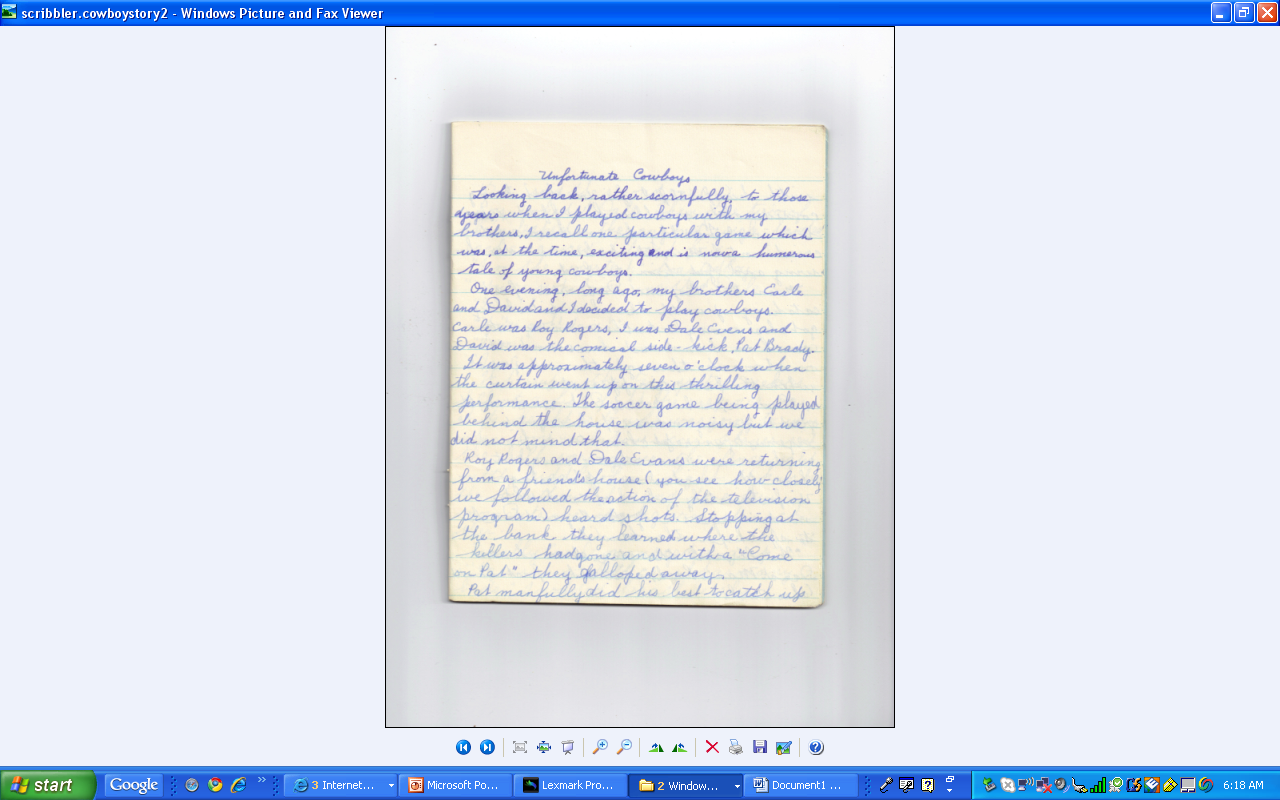 scribbler.cowboystory2 - Windows Picture and Fax Viewer
Unfortunate Cowboys
Looking back, rather scornfully, to those
years when I played cowboys with my
brothers, I recall one particular game which
was, at the time, exciting and is now a humerous
tale of young cowboys.
One evening, long ago, my brothers Carle
and David and I decided to play cowboys.
Carle was Roy Rogers, I was Dale Evens and
David was the comical side-kick, Pat Brady.
It was approximately seven o'clock when
the curtain went up on this thrilling
performance. The soccer game being played
behind the house was noisy but we
did not mind that.
Roy Rogers and Dale Evans were returning
from a friend's house (you see how closely
we followed the action of the television
program) heard shots. Stopping at
the bank they learned where the
killers had gone and with a "Come
on Pat" they galloped away.
Pat manfully did his best to catch up
start
Google
3 Internet...
Microsoft Po...
Lexmark Pro...
2 Window...
Document1 ...
6:18 AM